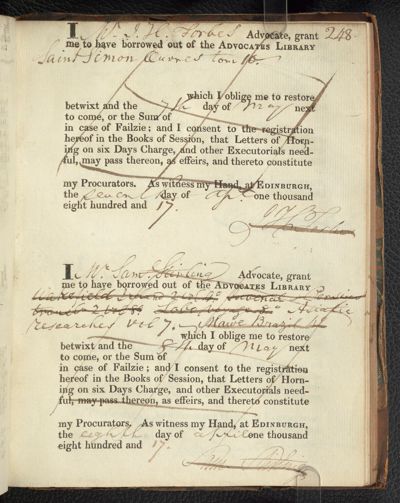 248
I Mr J. H. Forbes Advocate, grant
me to have borrowed out of the ADVOCATES LIBRARY
Saint Simon Œuvres tom
which I oblige me to restore
betwixt and the 7th day of May next
to come, or the Sum of
in case of Failzie; and I consent to the registration
hereof in the Books of Session, that Letters of Horn-
ing on six Days Charge, and other Executorials need-
ful, may pass thereon, as effeirs, and thereto constitute
my Procurators. As witness my Hand, at EDINBURGH,
the seventh day of Apl one thousand
eight hundred and 17.
I Mr Saml Stirling Advocate, grant
me to have borrowed out of the ADVOCATES LIBRARY
Asiatic
researches vol 7. Mawe Brazil
which I oblige me to restore
betwixt and the 8th day of May next
to come, or the Sum of
in case of Failzie; and I consent to the registration
hereof in the Books of Session, that Letters of Horn-
ing on six Days Charge, and other Executorials need-
ful, may pass thereon, as effeirs, and thereto constitute
my Procurators. As witness my Hand, at EDINBURGH,
the eighth day of april one thousand
eight hundred and 17.